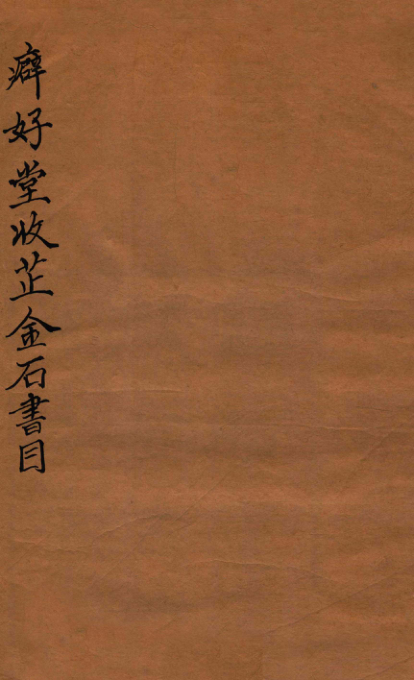 癖好堂收芷金石書目